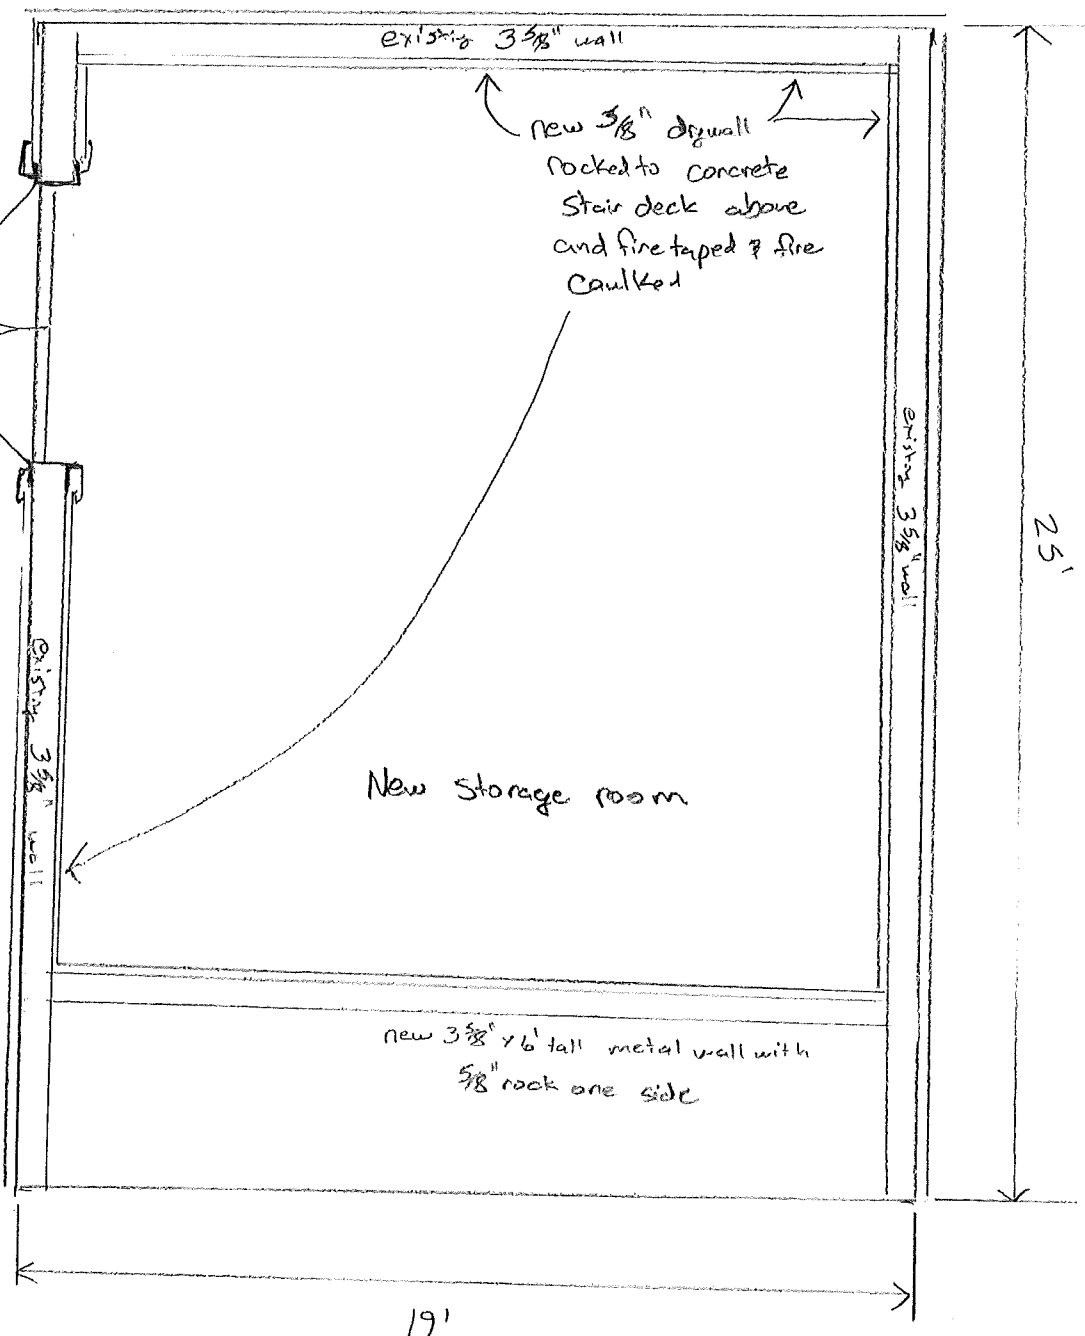 existing 3 5/8" wall
new 5/8" drywall
rocked to concrete
Stair deck above
and fire taped & fire
caulked
existing 3 5/8" wall
25'
existing 3 5/8" wall
New storage room
new 3 5/8" x 6' tall metal wall with
5/8" rock one side
19'